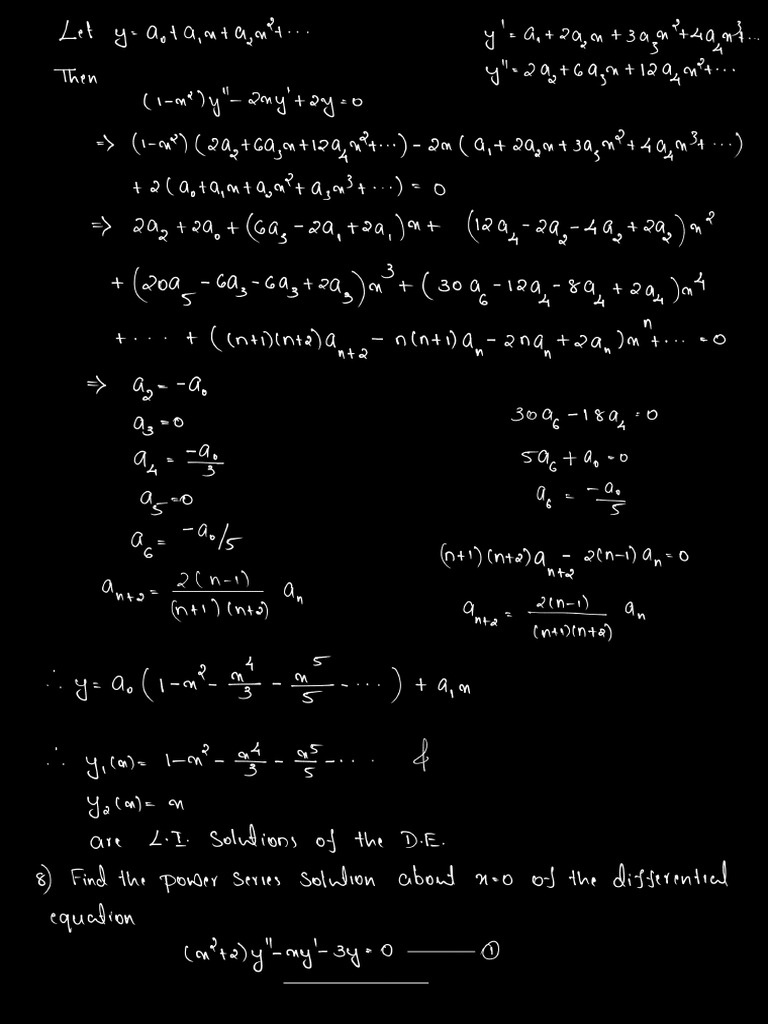 Let y = a₀ + a₁x + a₂x² + ⋯
y' = a₁ + 2a₂x + 3a₃x² + 4a₄x³ + ⋯
y'' = 2a₂ + 6a₃x + 12a₄x² + ⋯
Then
(1-x²)y'' - 2xy' + 2y = 0
⇒ (1-x²)(2a₂ + 6a₃x + 12a₄x² + ⋯) - 2x(a₁ + 2a₂x + 3a₃x² + 4a₄x³ + ⋯)
+ 2(a₀ + a₁x + a₂x² + a₃x³ + ⋯) = 0
⇒ 2a₂ + 2a₀ + (6a₃ - 2a₁ + 2a₁)x + (12a₄ - 2a₂ - 4a₂ + 2a₂)x²
+ (20a₅ - 6a₃ - 6a₃ + 2a₃)x³ + (30a₆ - 12a₄ - 8a₄ + 2a₄)x⁴
+ ⋯ + ((n+1)(n+2)aₙ₊₂ - n(n+1)aₙ - 2naₙ + 2aₙ)xⁿ + ⋯ = 0
⇒ a₂ = -a₀
a₃ = 0
a₄ = -a₀/3
a₅ = 0
a₆ = -a₀/5
aₙ₊₂ = 2(n-1)/((n+1)(n+2)) aₙ
30a₆ - 18a₄ = 0
5a₆ + a₀ = 0
a₆ = -a₀/5
(n+1)(n+2)aₙ₊₂ - 2(n-1)aₙ = 0
aₙ₊₂ = 2(n-1)/((n+1)(n+2)) aₙ
∴ y = a₀(1 - x² - x⁴/3 - x⁵/5 - ⋯) + a₁x
∴ y₁(x) = 1 - x² - x⁴/3 - x⁵/5 - ⋯ &
y₂(x) = x
are L.I. Solutions of the D.E.
8) Find the power series solution about x=0 of the differential
equation
(x²+2)y'' - xy' - 3y = 0 —— ①